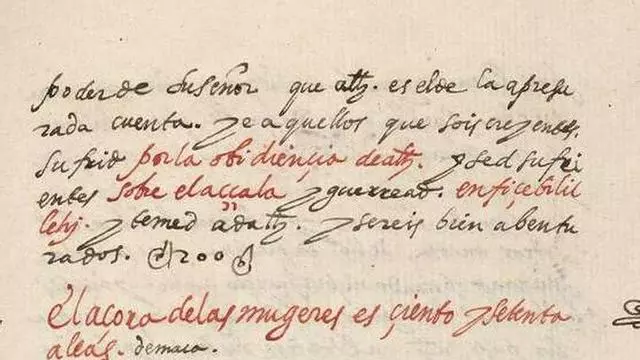 poder de su señor que alh. es el de la apresu
rada cuenta. ye aquellos que sois creyentes.
sufrid por la obidiençia de alh. y sed sufri
entes sobre el aççala y guerread. en fiçebilil
lehi. y temed ad alh. y sereis bien abentu
rados. 200
El açora de las mugeres es çiento y setenta
aleas. de maca.